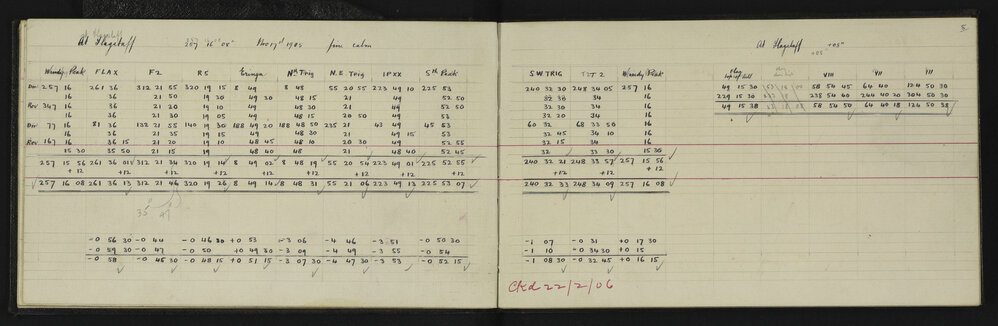 At Flagstaff 257 16 08 Nov 17th 1905 fine calm
Windy Peak FLAX F2 R5 Eringa Nth Trig N.E Trig 1PXX Sth Peak
Dir 257 16 261 36 312 21 55 320 19 15 8 49 8 48 55 20 55 223 49 10 225 53
16 36 21 50 19 20 49 30 48 15 21 49 52 50
Rev 347 16 36 21 20 19 10 49 48 30 21 49 52 50
16 36 21 30 19 05 49 48 15 20 50 49 53
Dir 77 16 81 36 132 21 55 140 19 30 188 49 20 188 48 50 235 21 43 49 45 53
16 36 21 35 19 15 49 48 30 21 49 15 53
Rev 167 16 36 15 21 20 19 10 48 45 48 10 20 30 49 52 55
15 30 35 50 21 15 19 48 40 48 21 48 40 52 45
257 15 56 261 36 01 312 21 34 320 19 14 8 49 02 8 48 19 55 20 54 223 49 01 225 52 55
+12 +12 +12 +12 +12 +12 +12 +12 +12
257 16 08 261 36 13 312 21 46 320 19 26 8 49 14 8 48 31 55 21 06 223 49 13 225 53 07
35 47
-0 56 30 -0 44 -0 46 30 +0 53 -3 06 -4 46 -3 51 -0 50 30
-0 59 30 -0 47 -0 50 +0 49 30 -3 09 -4 49 -3 55 -0 54
-0 58 -0 45 30 -0 48 15 +0 51 15 -3 07 30 -4 47 30 -3 53 -0 52 15
At Flagstaff +05"
+05"
SW TRIG T2T 2 Windy Peak
240 32 30 248 34 05 257 16
32 30 34 16
32 30 34 16
32 20 34 16
60 32 68 33 50 16
32 45 34 10 16
32 15 34 16
32 33 30 15 30
240 32 21 248 33 57 257 15 56
+12 +12 +12
240 32 33 248 34 09 257 16 08
-1 07 -0 31 +0 17 30
-1 10 -0 34 30 +0 15
-1 08 30 -0 32 45 +0 16 15
Ckd 22/2/06
VIII VII VII
49 15 30 58 54 45 64 40 124 50 30
229 15 30 238 54 50 244 40 20 304 50 30
49 15 38 58 54 50 64 40 18 124 50 38